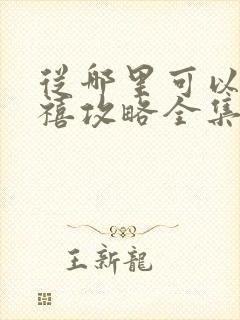 从哪里可以
禧攻略全集
王新龍